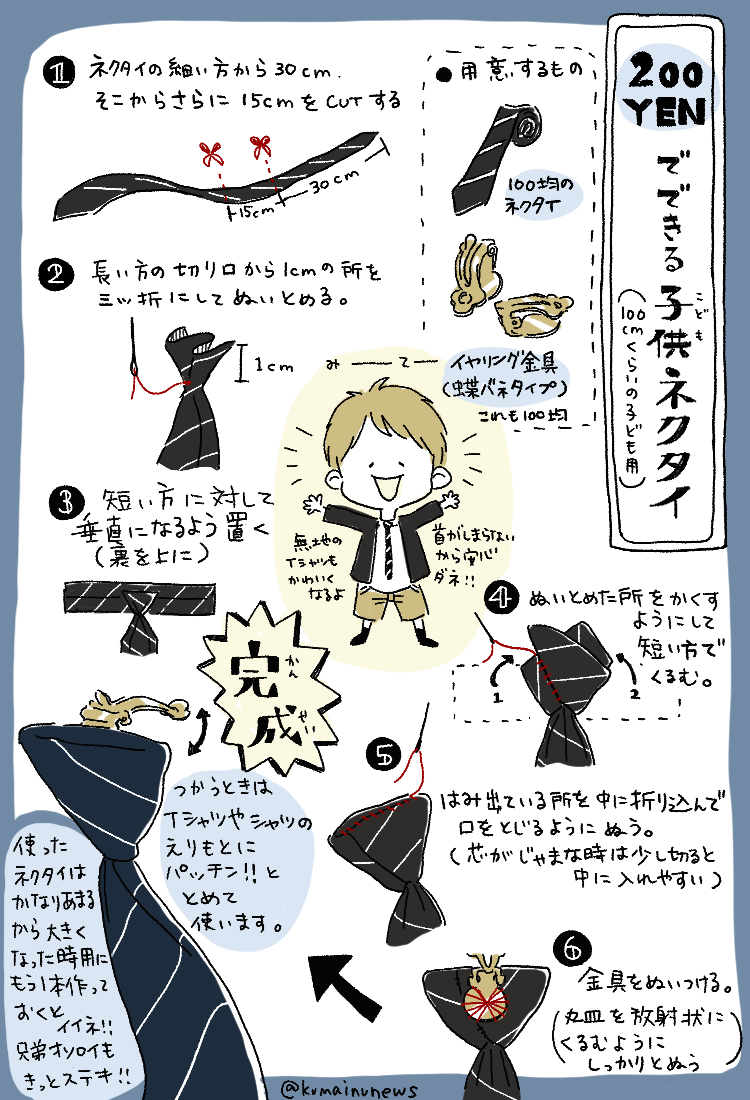 200
YEN
でできる子供ネクタイ
こども
(100cmくらいの子ども用)
●用意するもの
100均の
ネクタイ
イヤリング金具
(蝶バネタイプ)
これも100均
1 ネクタイの細い方から30cm.
そこからさらに15cmをCUTする
15cm
30cm
2 長い方の切り口から1cmの所を
三ッ折にしてぬいとめる。
1cm
み ー て ー
無地の
Tシャツも
かわいく
なるよ
首がしまらない
から安心
ダネ!!
3 短い方に対して
垂直になるよう置く
(裏を上に)
4 ぬいとめた所をかくす
ようにして
短い方で
くるむ。
1
2
5
はみ出ている所を中に折り込んで
口をとじるようにぬう。
(芯がじゃまな時は少し切ると
中に入れやすい)
6
金具をぬいつける。
(丸皿を放射状に
くるむように
しっかりとぬう)
完成
かん
せい
つかうときは
Tシャツやシャツの
えりもとに
パッチン!!と
とめて
使います。
使った
ネクタイは
かなりあまる
から大きく
なった時用に
もう1本作って
おくと
イイネ!!
兄弟オソロイも
きっとステキ!!
@kumainunews